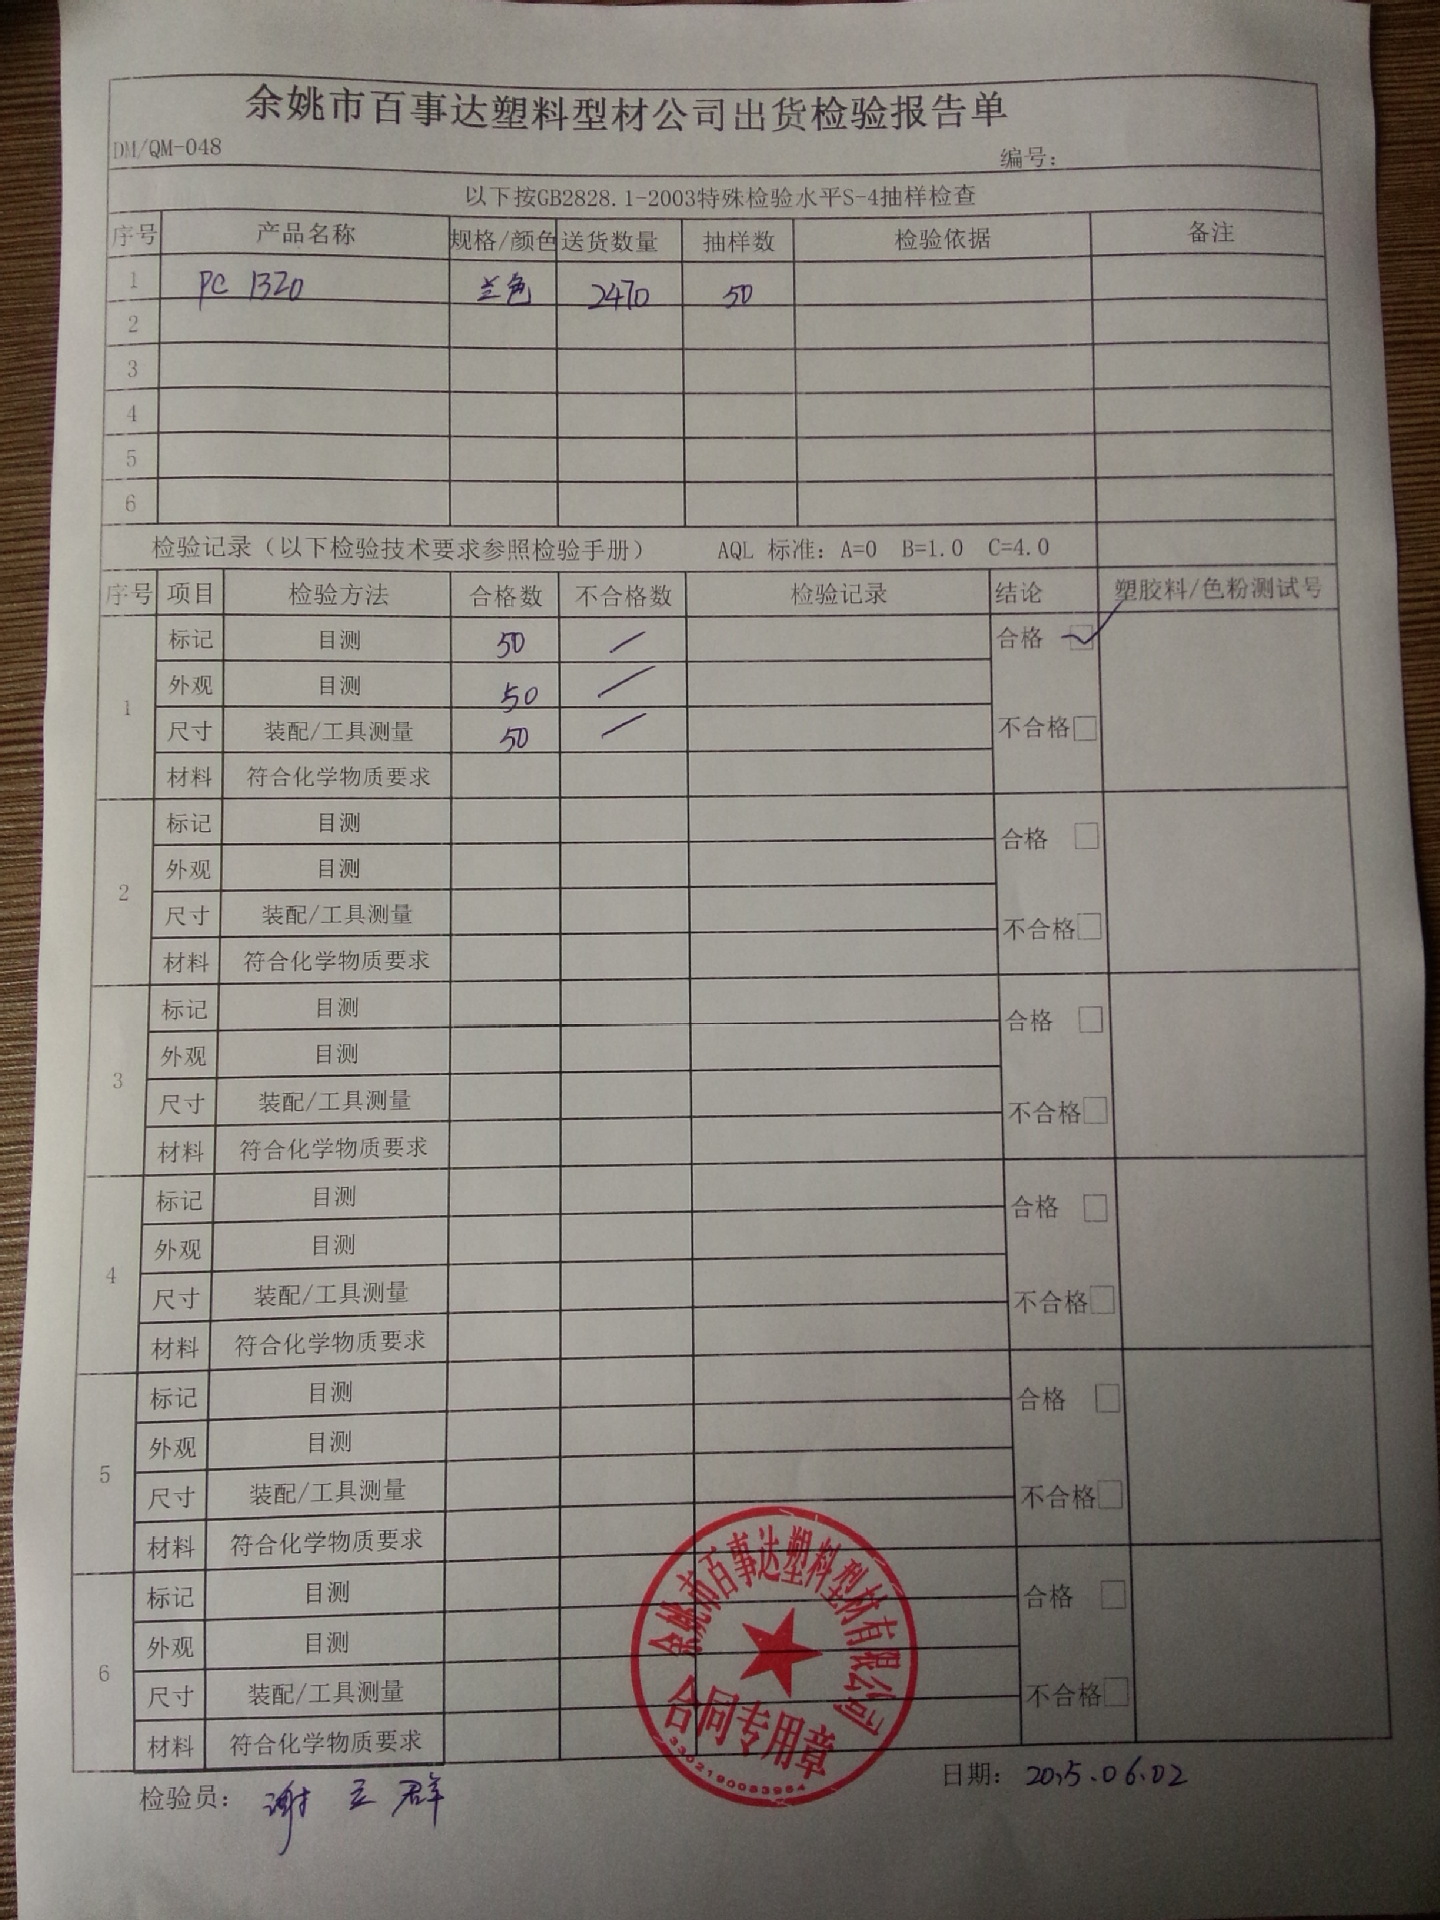 余姚市百事达塑料型材公司出货检验报告单
DM/QM-048
编号：
以下按GB2828.1-2003特殊检验水平S-4抽样检查
序号 产品名称 规格/颜色 送货数量 抽样数 检验依据 备注
1 PC 1320 兰色 2470 50
2
3
4
5
6
检验记录（以下检验技术要求参照检验手册） AQL 标准：A=0 B=1.0 C=4.0
序号 项目 检验方法 合格数 不合格数 检验记录 结论 塑胶料/色粉测试号
1 标记 目测 50 / 合格
外观 目测 50 /
尺寸 装配/工具测量 50 / 不合格
材料 符合化学物质要求
2 标记 目测 合格
外观 目测
尺寸 装配/工具测量 不合格
材料 符合化学物质要求
3 标记 目测 合格
外观 目测
尺寸 装配/工具测量 不合格
材料 符合化学物质要求
4 标记 目测 合格
外观 目测
尺寸 装配/工具测量 不合格
材料 符合化学物质要求
5 标记 目测 合格
外观 目测
尺寸 装配/工具测量 不合格
材料 符合化学物质要求
6 标记 目测 合格
外观 目测
尺寸 装配/工具测量 不合格
材料 符合化学物质要求
余姚市百事达塑料型材有限公司
合同专用章
检验员： 谢 群
日期： 2015.06.02